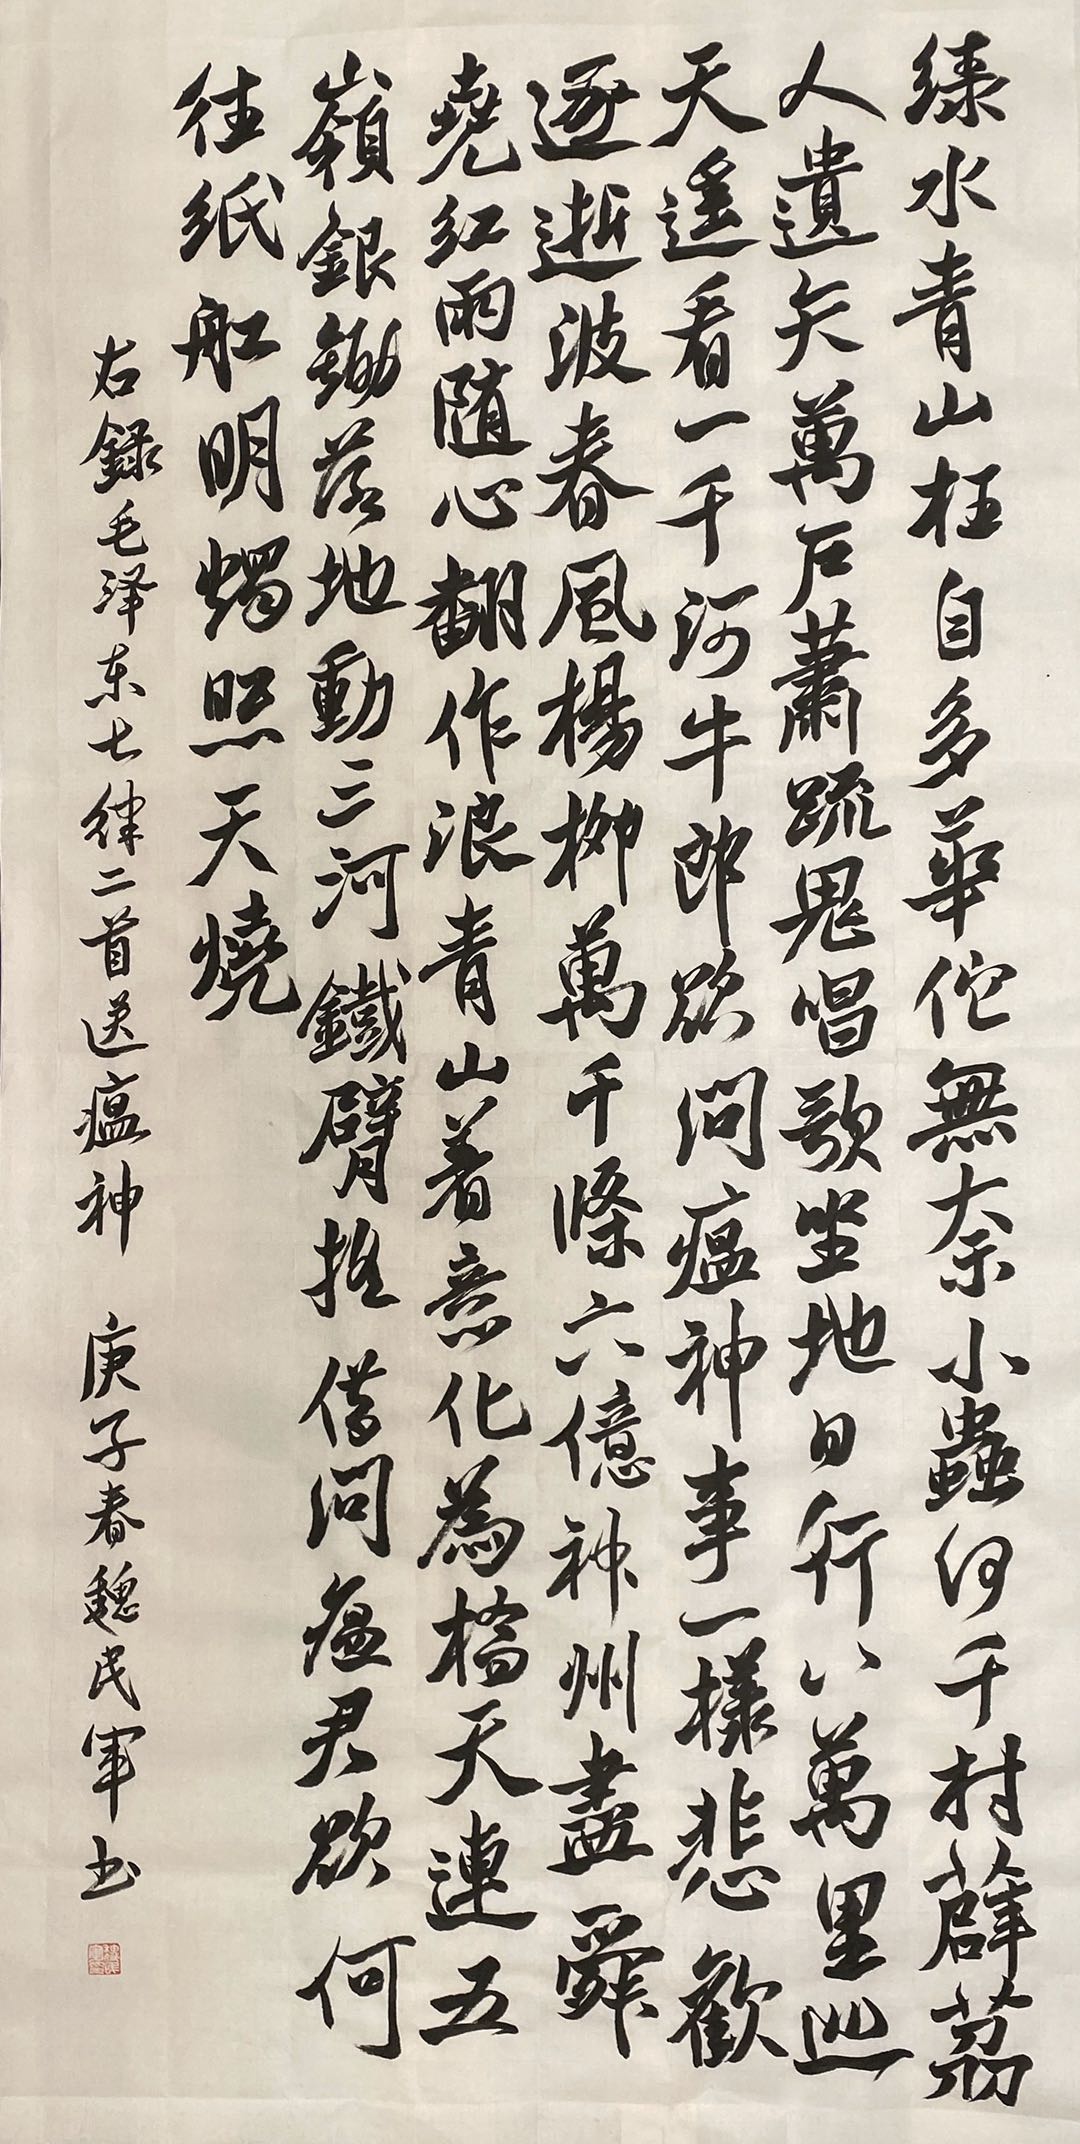 綠水青山枉自多華佗無奈小蟲何千村薜荔
人遺矢萬戶蕭疏鬼唱歌坐地日行八萬里巡
天遙看一千河牛郎欲問瘟神事一樣悲歡
逐逝波春風楊柳萬千條六億神州盡舜
堯紅雨隨心翻作浪青山着意化為橋天連五
嶺銀鋤落地動三河鐵臂搖借問瘟君欲何
往紙船明燭照天燒
右錄毛泽东七律二首送瘟神 庚子春魏民军书